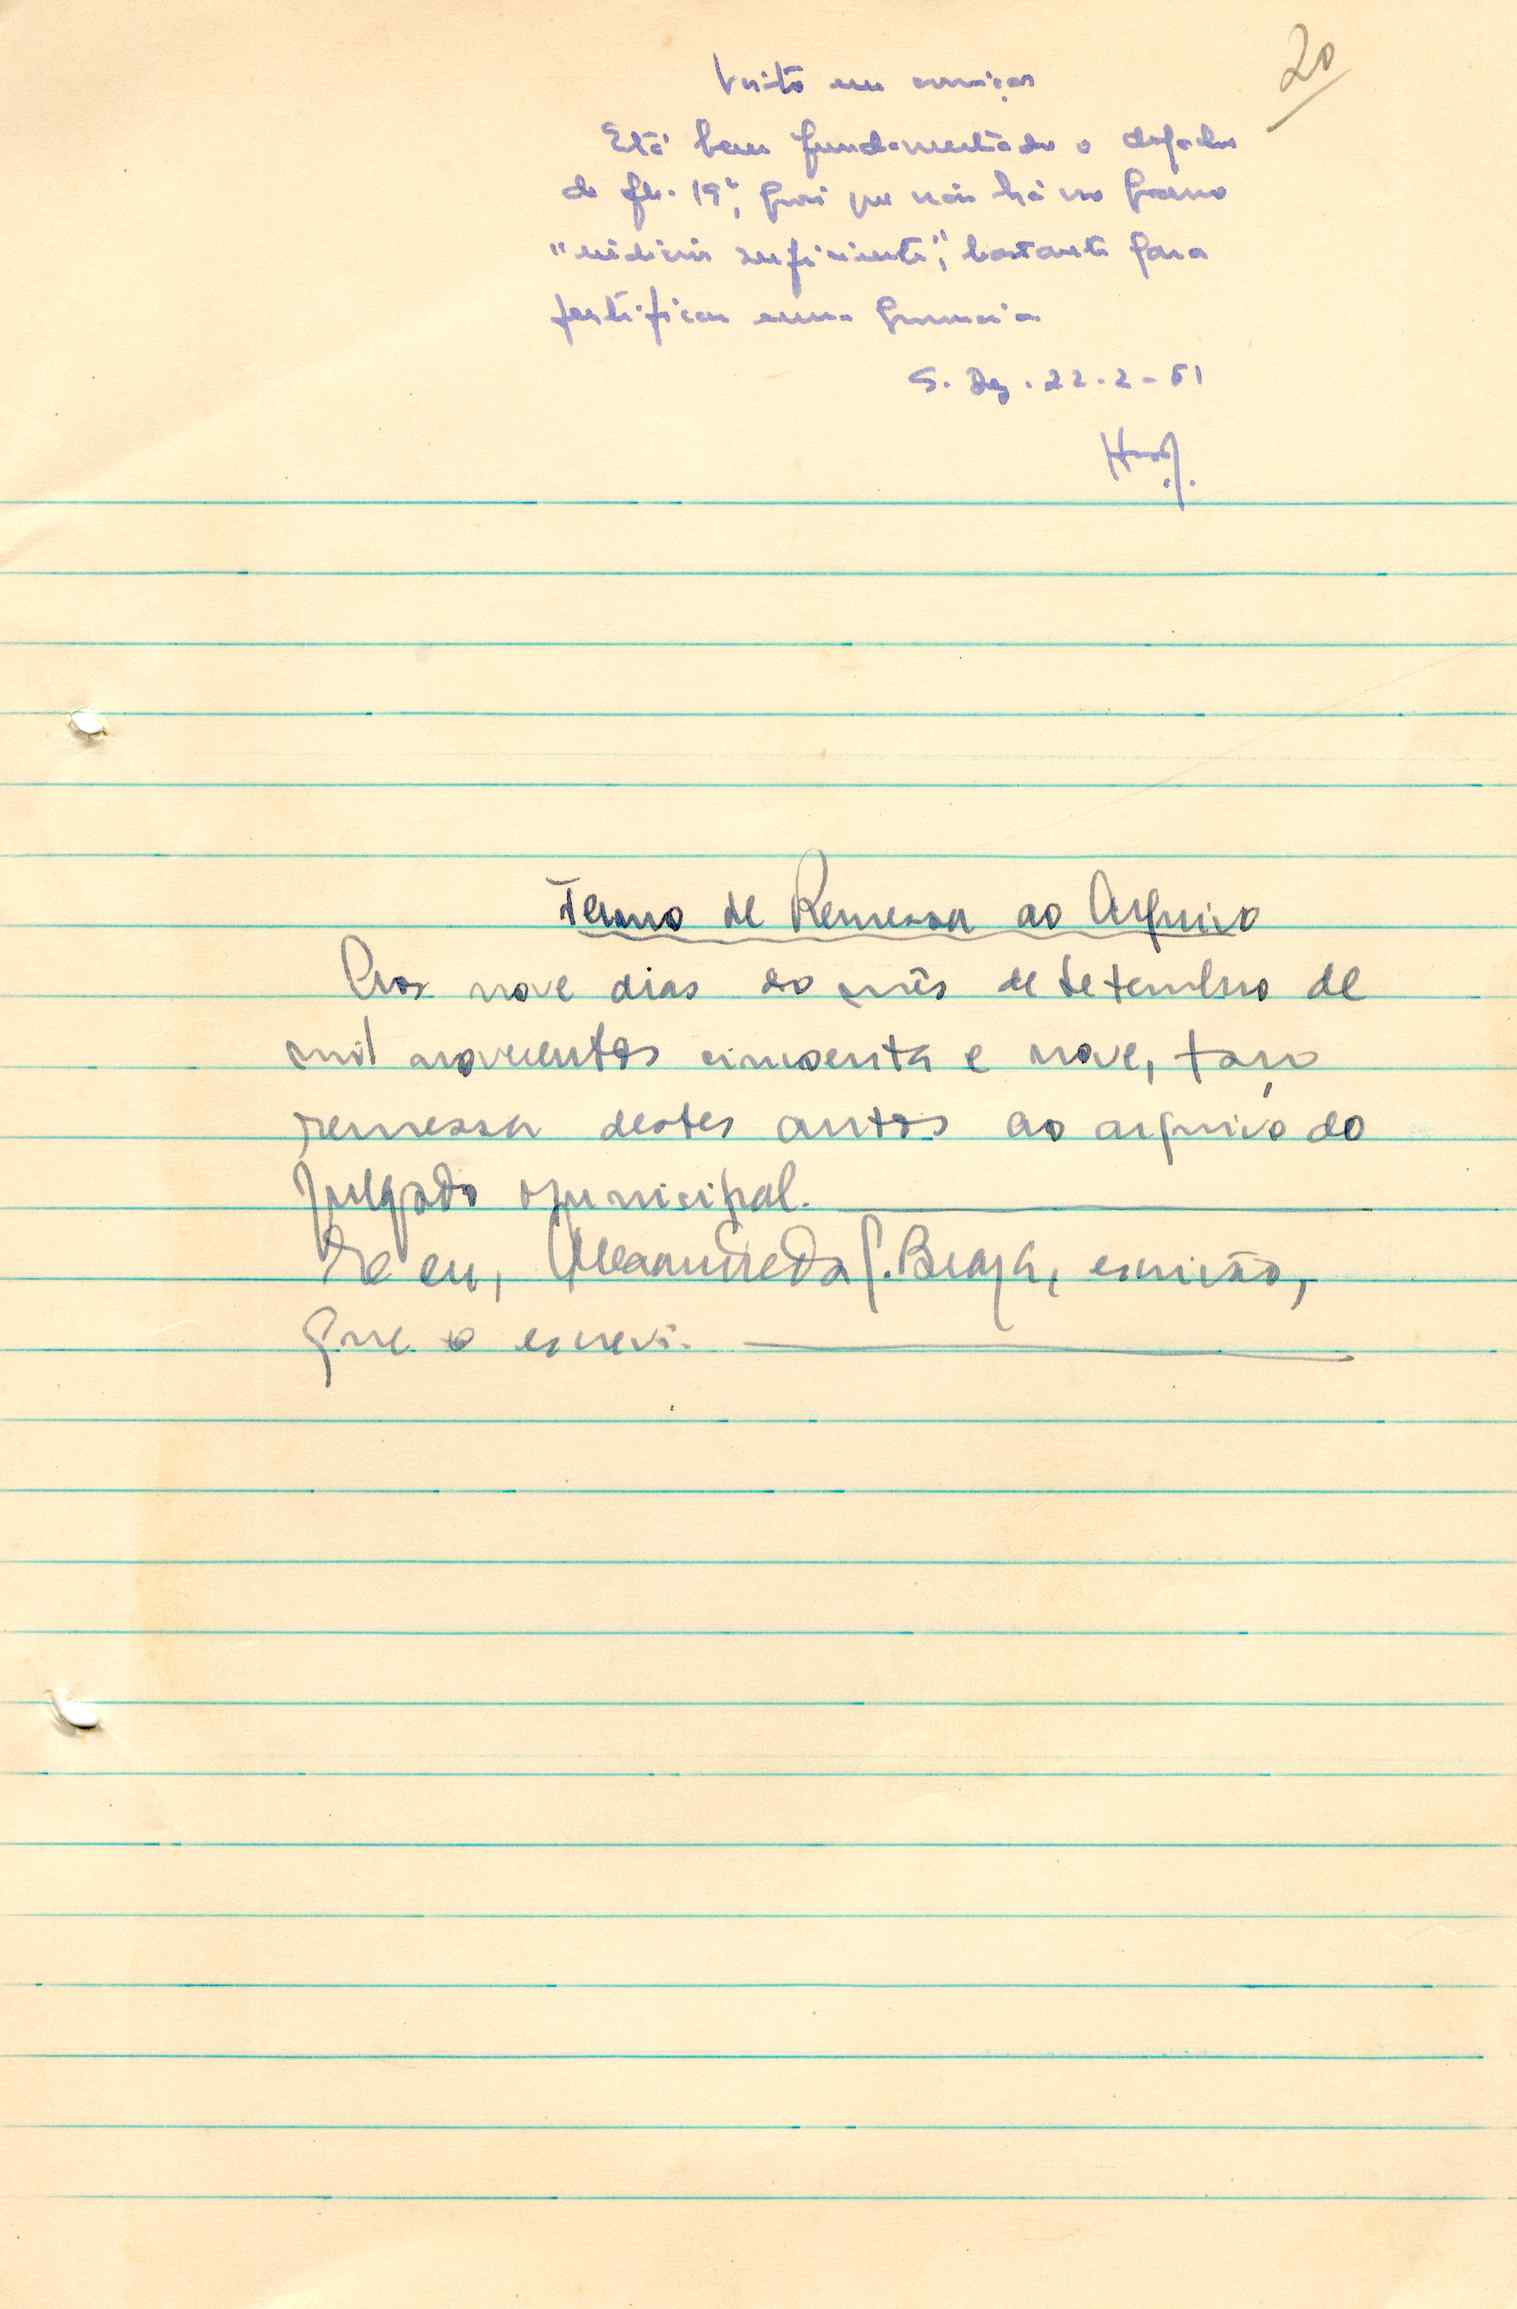 20
Visto em correição
Está bem fundamentado o despacho
de fls. 19v, pois que não há no processo
"indicios suficientes", bastante para
justificar uma pronuncia
S. Dez. 22-2-61
Termo de Remessa ao Arquivo
Aos nove dias do mês de setembro de
mil novecentos cincoenta e nove, faço
remessa destes autos ao arquivo do
julgado municipal.
De eu, S. Braga, escrivão,
que o escrevi.